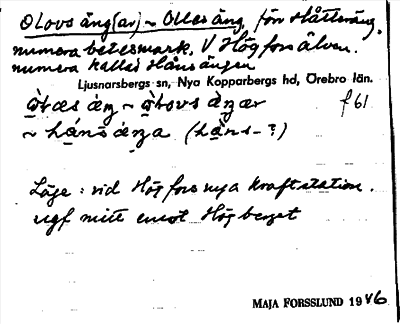 Olovs äng(ar) ~ Olles äng, förr slåtteräng,
numera betesmark, V Högforsälven.
numera kallas Hans ängen
Ljusnarsbergs sn, Nya Kopparbergs hd, Örebro län.
f61
Läge: vid Högfors nya kraftstation.
ungf mitt emot Högberget
MAJA FORSSLUND 1946